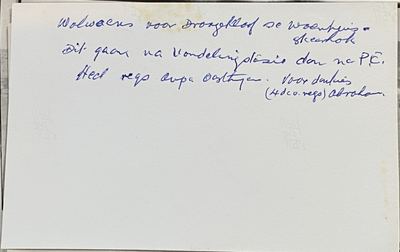 Wolwaens voor Droogekloof se Woonhuis.
skeerhok
Dit gaan na Vondelingplasie dan na P.E.
Heel regs oupa voor
(4de v. regs) Abraham.